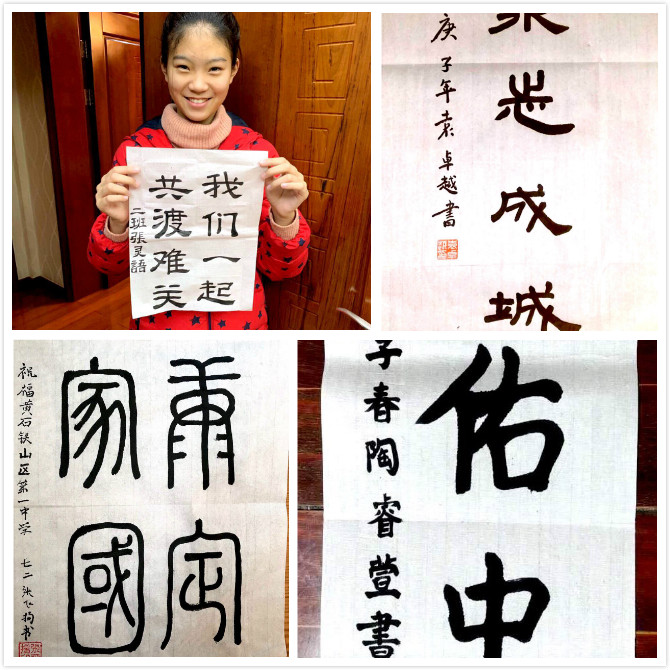 我们一起
共渡难关
二班張灵語
志成城
庚子年袁卓越書
康定
家國
祝福黄石铁山区第一中学 七二
佑中
子春陶睿萱書